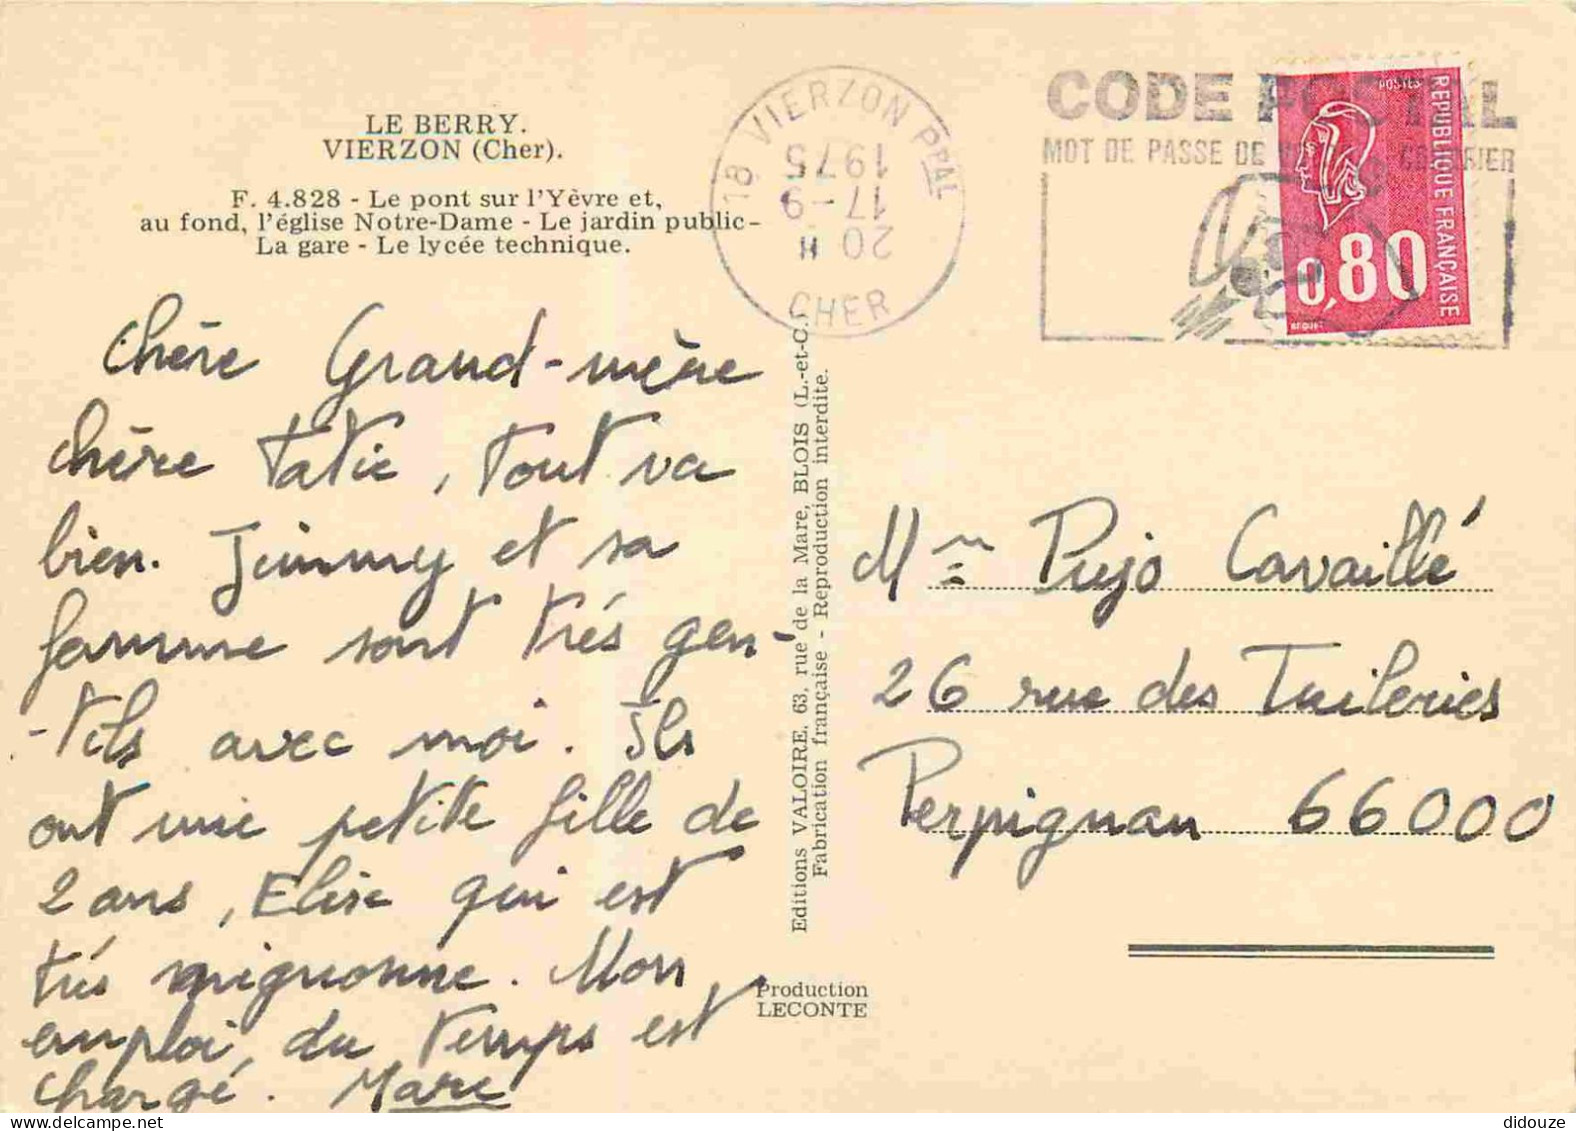 LE BERRY.
VIERZON (Cher).
F. 4.828 - Le pont sur l'Yèvre et,
au fond, l'église Notre-Dame - Le jardin public -
La gare - Le lycée technique.
chère Grand-mère
chère Tatie, Tout va
bien. Jimmy et sa
famme sont trés gen-
-tils avec moi. Ils
ont une petite fille de
2 ans, Elise qui est
trés mignonne. Mon
emploi du temps est
chargé. Marc
Editions VALOIRE, 63, rue de la Mare, BLOIS (L.-et-C.)
Fabrication française - Reproduction interdite.
Production
LECONTE
18 VIERZON PPAL
20 H
17-9
1975
CHER
CODE POSTAL
MOT DE PASSE DE COURRIER
POSTES
REPUBLIQUE FRANÇAISE
0,80
BEQUET
Mme Pujo Cavaillé
26 rue des Tuileries
Perpignan 66000
didouze